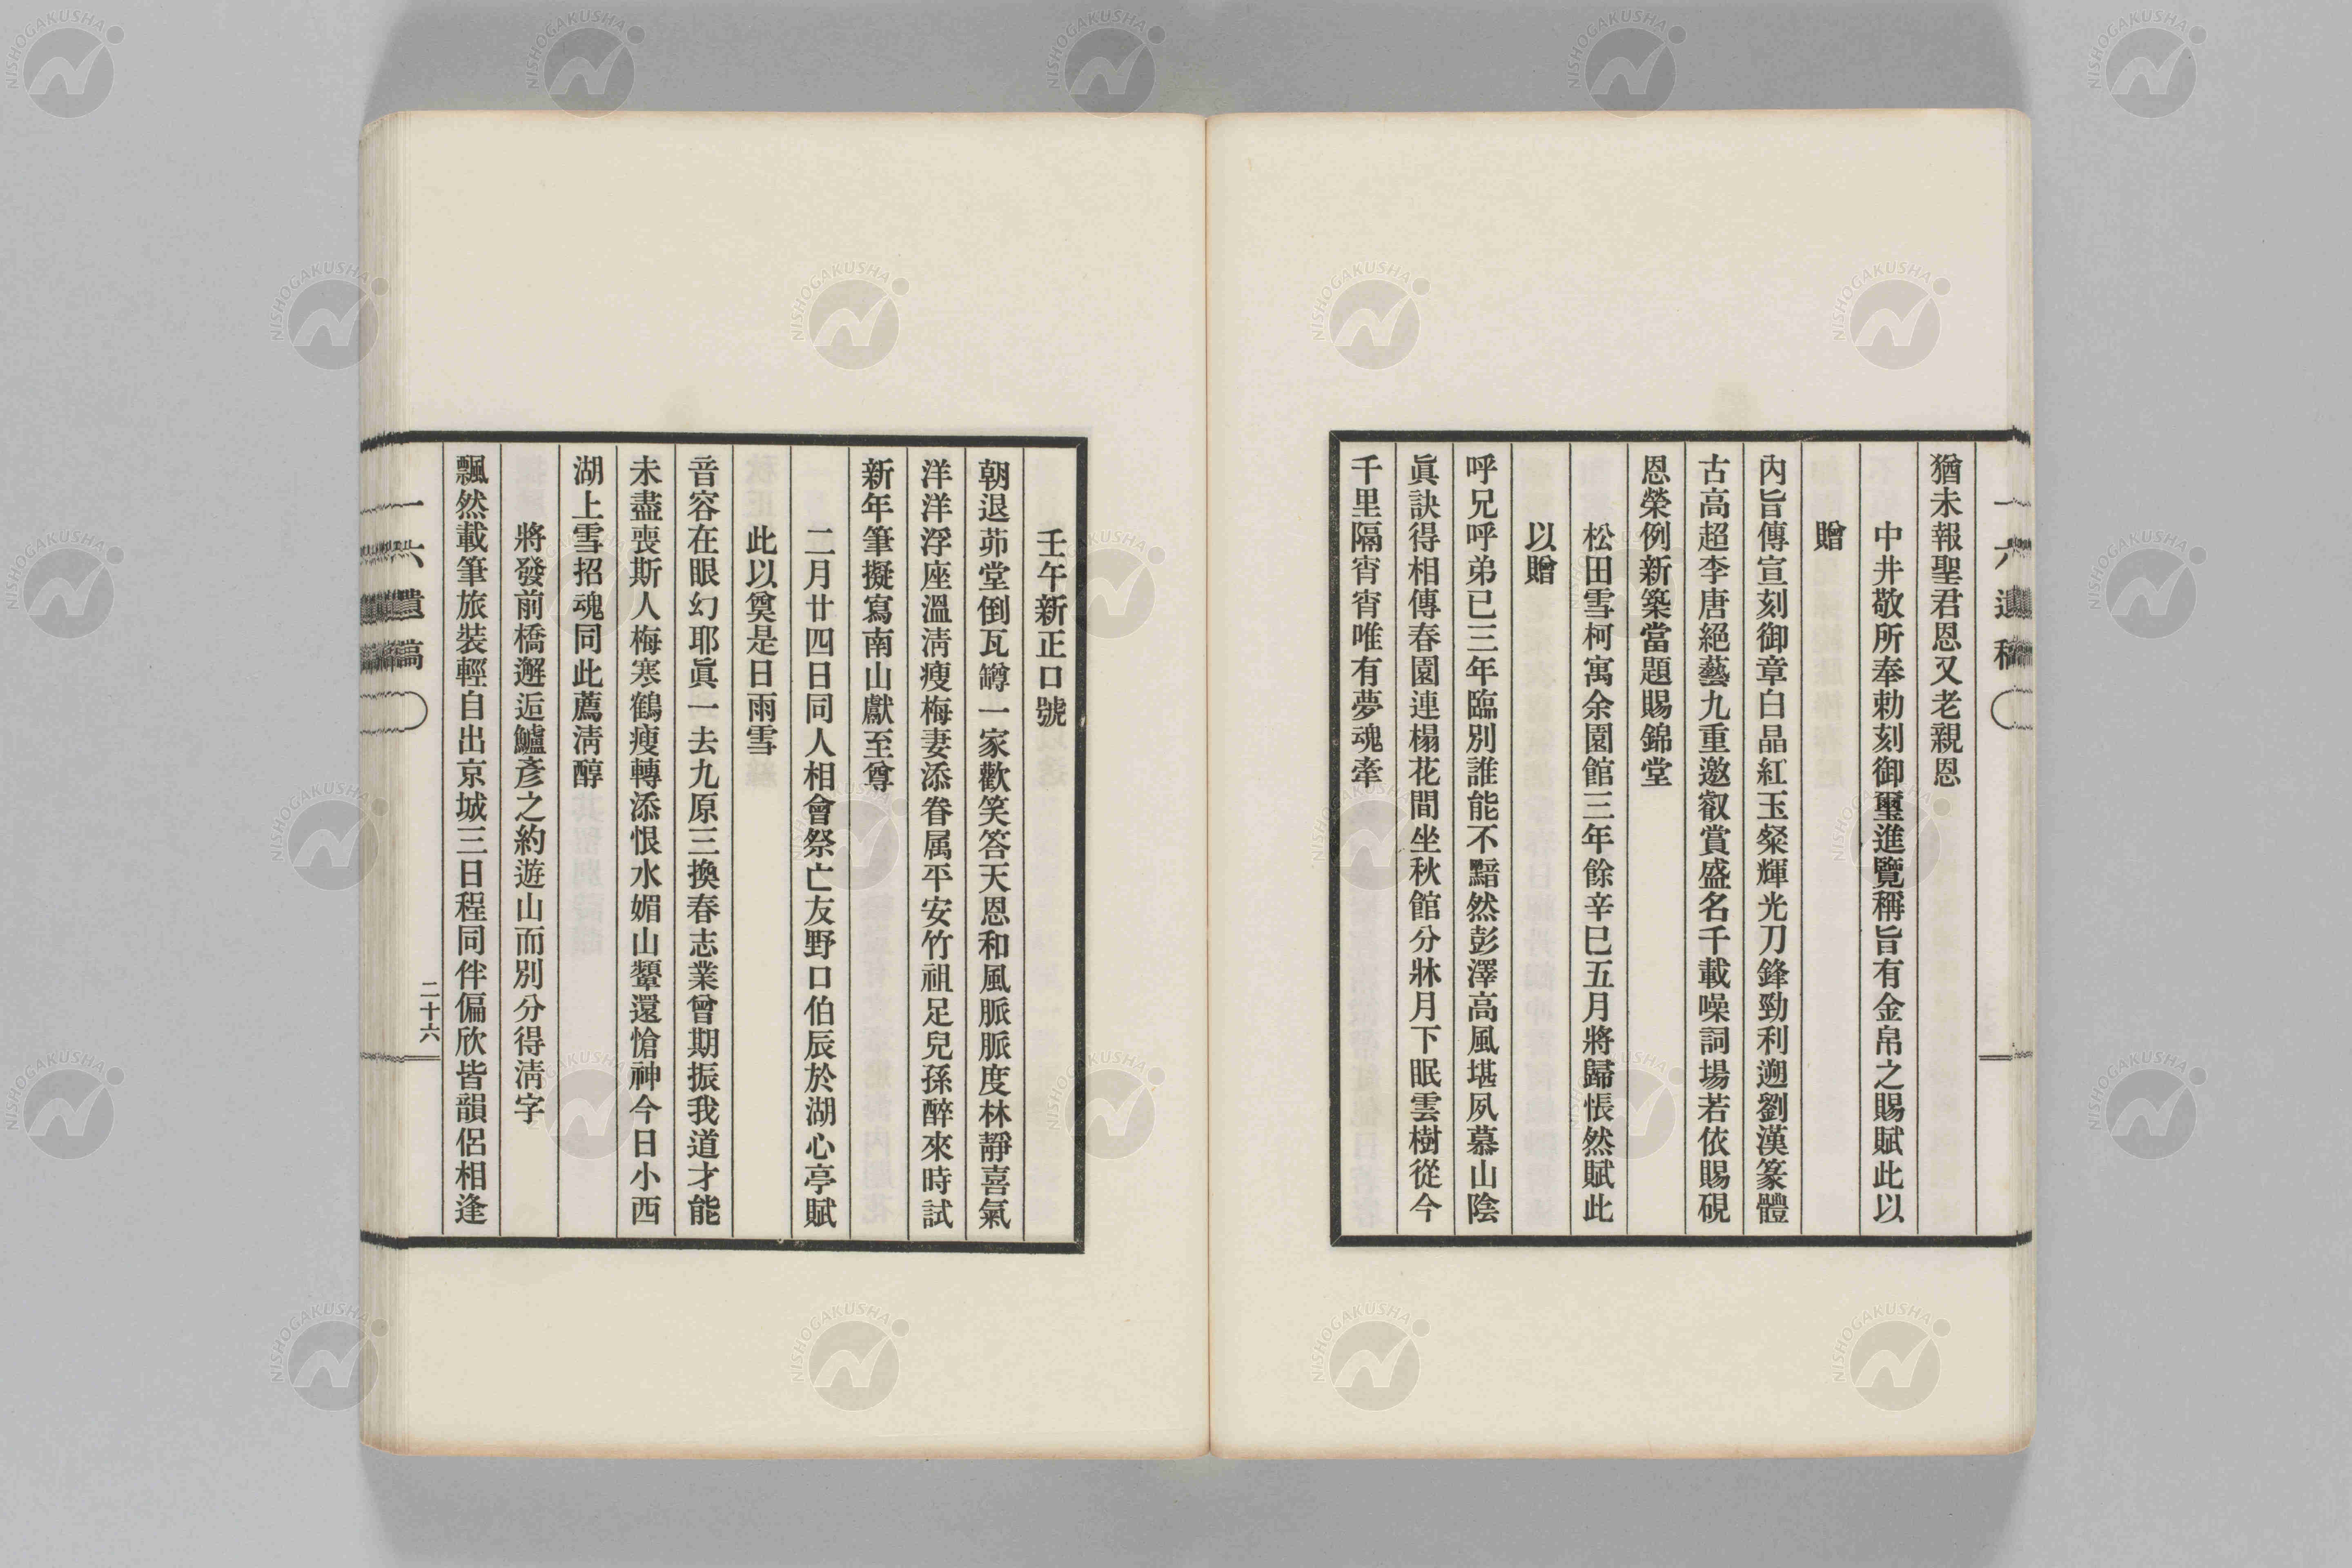 猶未報聖君恩又老親恩
中井敬所奉勅刻御璽進覽稱旨有金帛之賜賦此以
贈
內旨傳宣刻御章白晶紅玉粲輝光刀鋒勁利遡劉漢篆體
古高超李唐絕藝九重邀叡賞盛名千載噪詞場若依賜硯
恩榮例新築當題賜錦堂
松田雪柯寓余園館三年餘辛巳五月將歸悵然賦此
以贈
呼兄呼弟已三年臨別誰能不黯然彭澤高風堪夙慕山陰
眞訣得相傳春園連榻花間坐秋館分牀月下眠雲樹從今
千里隔宵宵唯有夢魂牽
壬午新正口號
朝退茆堂倒瓦罇一家歡笑答天恩和風脈脈度林靜喜氣
洋洋浮座溫淸瘦梅妻添眷属平安竹祖足兒孫醉來時試
新年筆擬寫南山獻至尊
二月廿四日同人相會祭亡友野口伯辰於湖心亭賦
此以奠是日雨雪
音容在眼幻耶眞一去九原三換春志業曾期振我道才能
未盡喪斯人梅寒鶴瘦轉添恨水媚山顰還愴神今日小西
湖上雪招魂同此薦淸醇
將發前橋邂逅鱸彥之約遊山而別分得淸字
飄然載筆旅裝輕自出京城三日程同伴偏欣皆韻侶相逢
一六遺稿
二十六
NISHOGAKUSHA